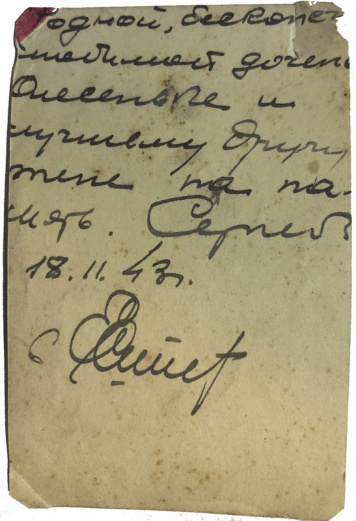 одной, бесконеч
любимой дочень
Олесеньке и
лучшему другу
жене на па-
мять. Сергей
18.11.43г.